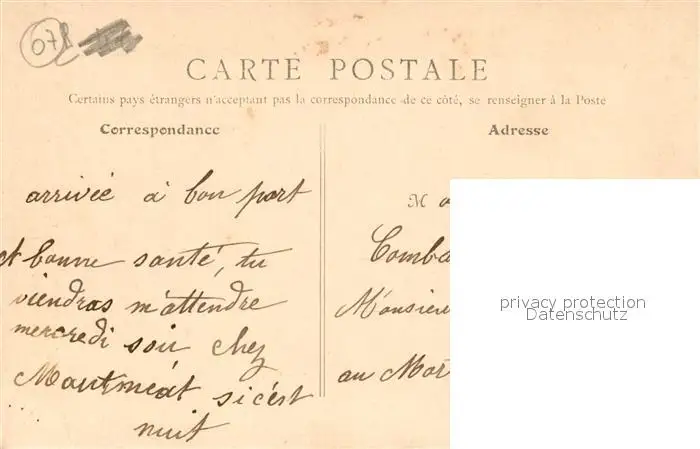 078
CARTE POSTALE
Certains pays étrangers n'acceptent pas la correspondance de ce côté, se renseigner à la Poste
Correspondance
arrivée à bon port
et bonne santé, tu
viendras m'attendre
mercredi soir chez
si c'est
nuit
Adresse
M
Comba
Monsieu
au Mor
privacy protection
Datenschutz